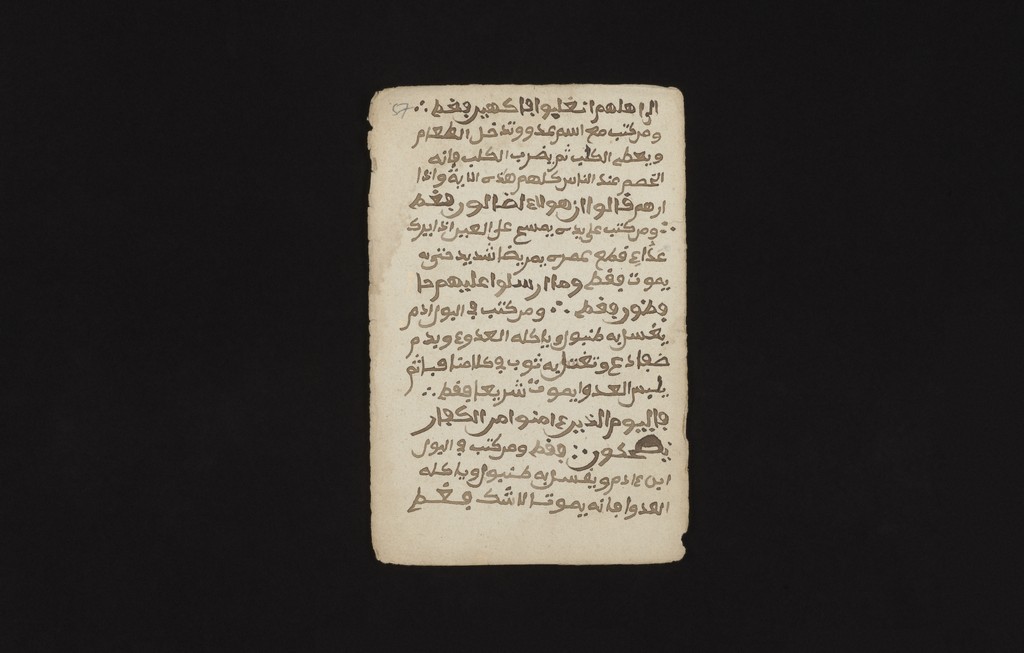 الى اهلهم انقلبوا فاكهين فقط ∴
ومن كتب مع اسم عدو وتدخل الطعام
ويعطى الكلب ثم يضرب الكلب فانه
الخصم عند الناس كلهم هذه الاية واذا
ارهم قالوا ان هولاء لضالون فقط
∴ ومن كتب على يده يمسح على العين اذا
يموت فقط وما ارسلوا عليهم حا
فظون فقط ∴ ومن كتب في البول ادم
يغسل به طنبول وياكله العدو ويدم
ضفادع وتغتسل به ثوب في كلامنا قبا ثم
يلبس العدوا يموت شريعا فقط ∴
فاليوم الذين ءامنوا من الكفار
يضحكون ∴ فقط ومن كتب في البول
ابن ءادم ويغسل به طنبول وياكله
العدوا فانه يموت لا شك فقط